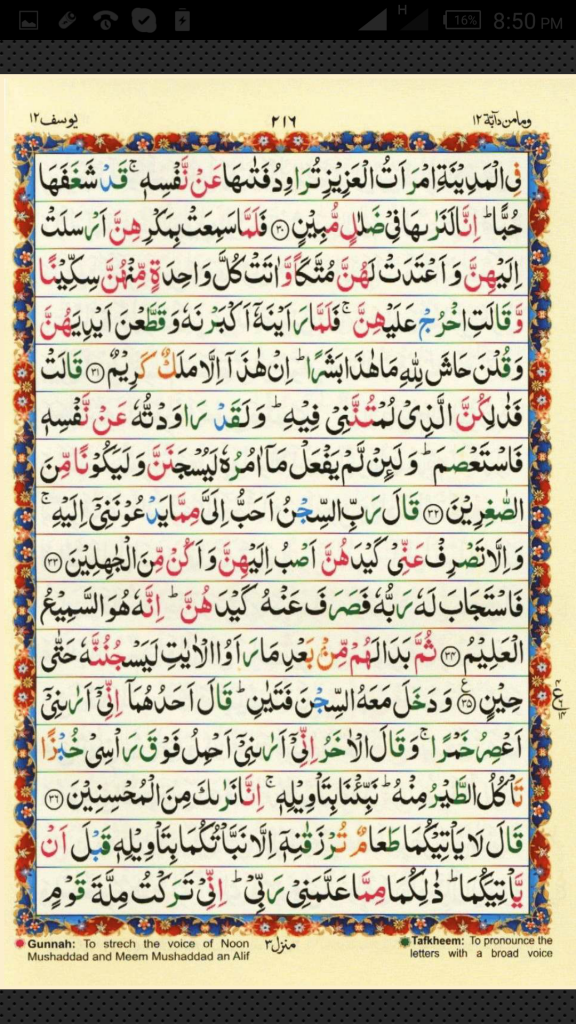 H 16% 8:50 PM
يوسف ١٢ ٢١٦ وما من دآبة ١٢
فِى الْمَدِيْنَةِ امْرَاَتُ الْعَزِيْزِ تُرَاوِدُ فَتٰىهَا عَنْ نَّفْسِهٖ ۚ قَدْ شَغَفَهَا
حُبًّا ؕ اِنَّا لَنَرٰىهَا فِىْ ضَلٰلٍ مُّبِيْنٍ ۝۳۰ فَلَمَّا سَمِعَتْ بِمَكْرِهِنَّ اَرْسَلَتْ
اِلَيْهِنَّ وَ اَعْتَدَتْ لَهُنَّ مُتَّكَاً وَّاٰتَتْ كُلَّ وَاحِدَةٍ مِّنْهُنَّ سِكِّيْنًا
وَّ قَالَتِ اخْرُجْ عَلَيْهِنَّ ۚ فَلَمَّا رَاَيْنَهٗۤ اَكْبَرْنَهٗ وَقَطَّعْنَ اَيْدِيَهُنَّ
وَقُلْنَ حَاشَ لِلّٰهِ مَا هٰذَا بَشَرًا ؕ اِنْ هٰذَاۤ اِلَّا مَلَكٌ كَرِيْمٌ ۝۳۱ قَالَتْ
فَذٰلِكُنَّ الَّذِىْ لُمْتُنَّنِىْ فِيْهِ ؕ وَلَقَدْ رَاوَدْتُّهٗ عَنْ نَّفْسِهٖ
فَاسْتَعْصَمَ ؕ وَلَئِنْ لَّمْ يَفْعَلْ مَاۤ اٰمُرُهٗ لَيُسْجَنَنَّ وَلَيَكُوْنًا مِّنَ
الصّٰغِرِيْنَ ۝۳۲ قَالَ رَبِّ السِّجْنُ اَحَبُّ اِلَىَّ مِمَّا يَدْعُوْنَنِىْۤ اِلَيْهِ ۚ
وَاِلَّا تَصْرِفْ عَنِّىْ كَيْدَهُنَّ اَصْبُ اِلَيْهِنَّ وَاَكُنْ مِّنَ الْجٰهِلِيْنَ ۝۳۳
فَاسْتَجَابَ لَهٗ رَبُّهٗ فَصَرَفَ عَنْهُ كَيْدَهُنَّ ؕ اِنَّهٗ هُوَ السَّمِيْعُ
الْعَلِيْمُ ۝۳۴ ثُمَّ بَدَا لَهُمْ مِّنْۢ بَعْدِ مَا رَاَوُا الْاٰيٰتِ لَيَسْجُنُنَّهٗ حَتّٰى
حِيْنٍ ۝۳۵ ع وَدَخَلَ مَعَهُ السِّجْنَ فَتَيٰنِ ؕ قَالَ اَحَدُهُمَاۤ اِنِّىْۤ اَرٰىنِىْۤ
اَعْصِرُ خَمْرًا ۚ وَقَالَ الْاٰخَرُ اِنِّىْۤ اَرٰىنِىْۤ اَحْمِلُ فَوْقَ رَاْسِىْ خُبْزًا
تَاْكُلُ الطَّيْرُ مِنْهُ ؕ نَبِّئْنَا بِتَاْوِيْلِهٖ ۚ اِنَّا نَرٰىكَ مِنَ الْمُحْسِنِيْنَ ۝۳۶
قَالَ لَا يَاْتِيْكُمَا طَعَامٌ تُرْزَقٰنِهٖۤ اِلَّا نَبَّاْتُكُمَا بِتَاْوِيْلِهٖ قَبْلَ اَنْ
يَّاْتِيَكُمَا ؕ ذٰلِكُمَا مِمَّا عَلَّمَنِىْ رَبِّىْ ؕ اِنِّىْ تَرَكْتُ مِلَّةَ قَوْمٍ
Gunnah: To strech the voice of Noon
Mushaddad and Meem Mushaddad an Alif
منزل ٣
Tafkheem: To pronounce the
letters with a broad voice